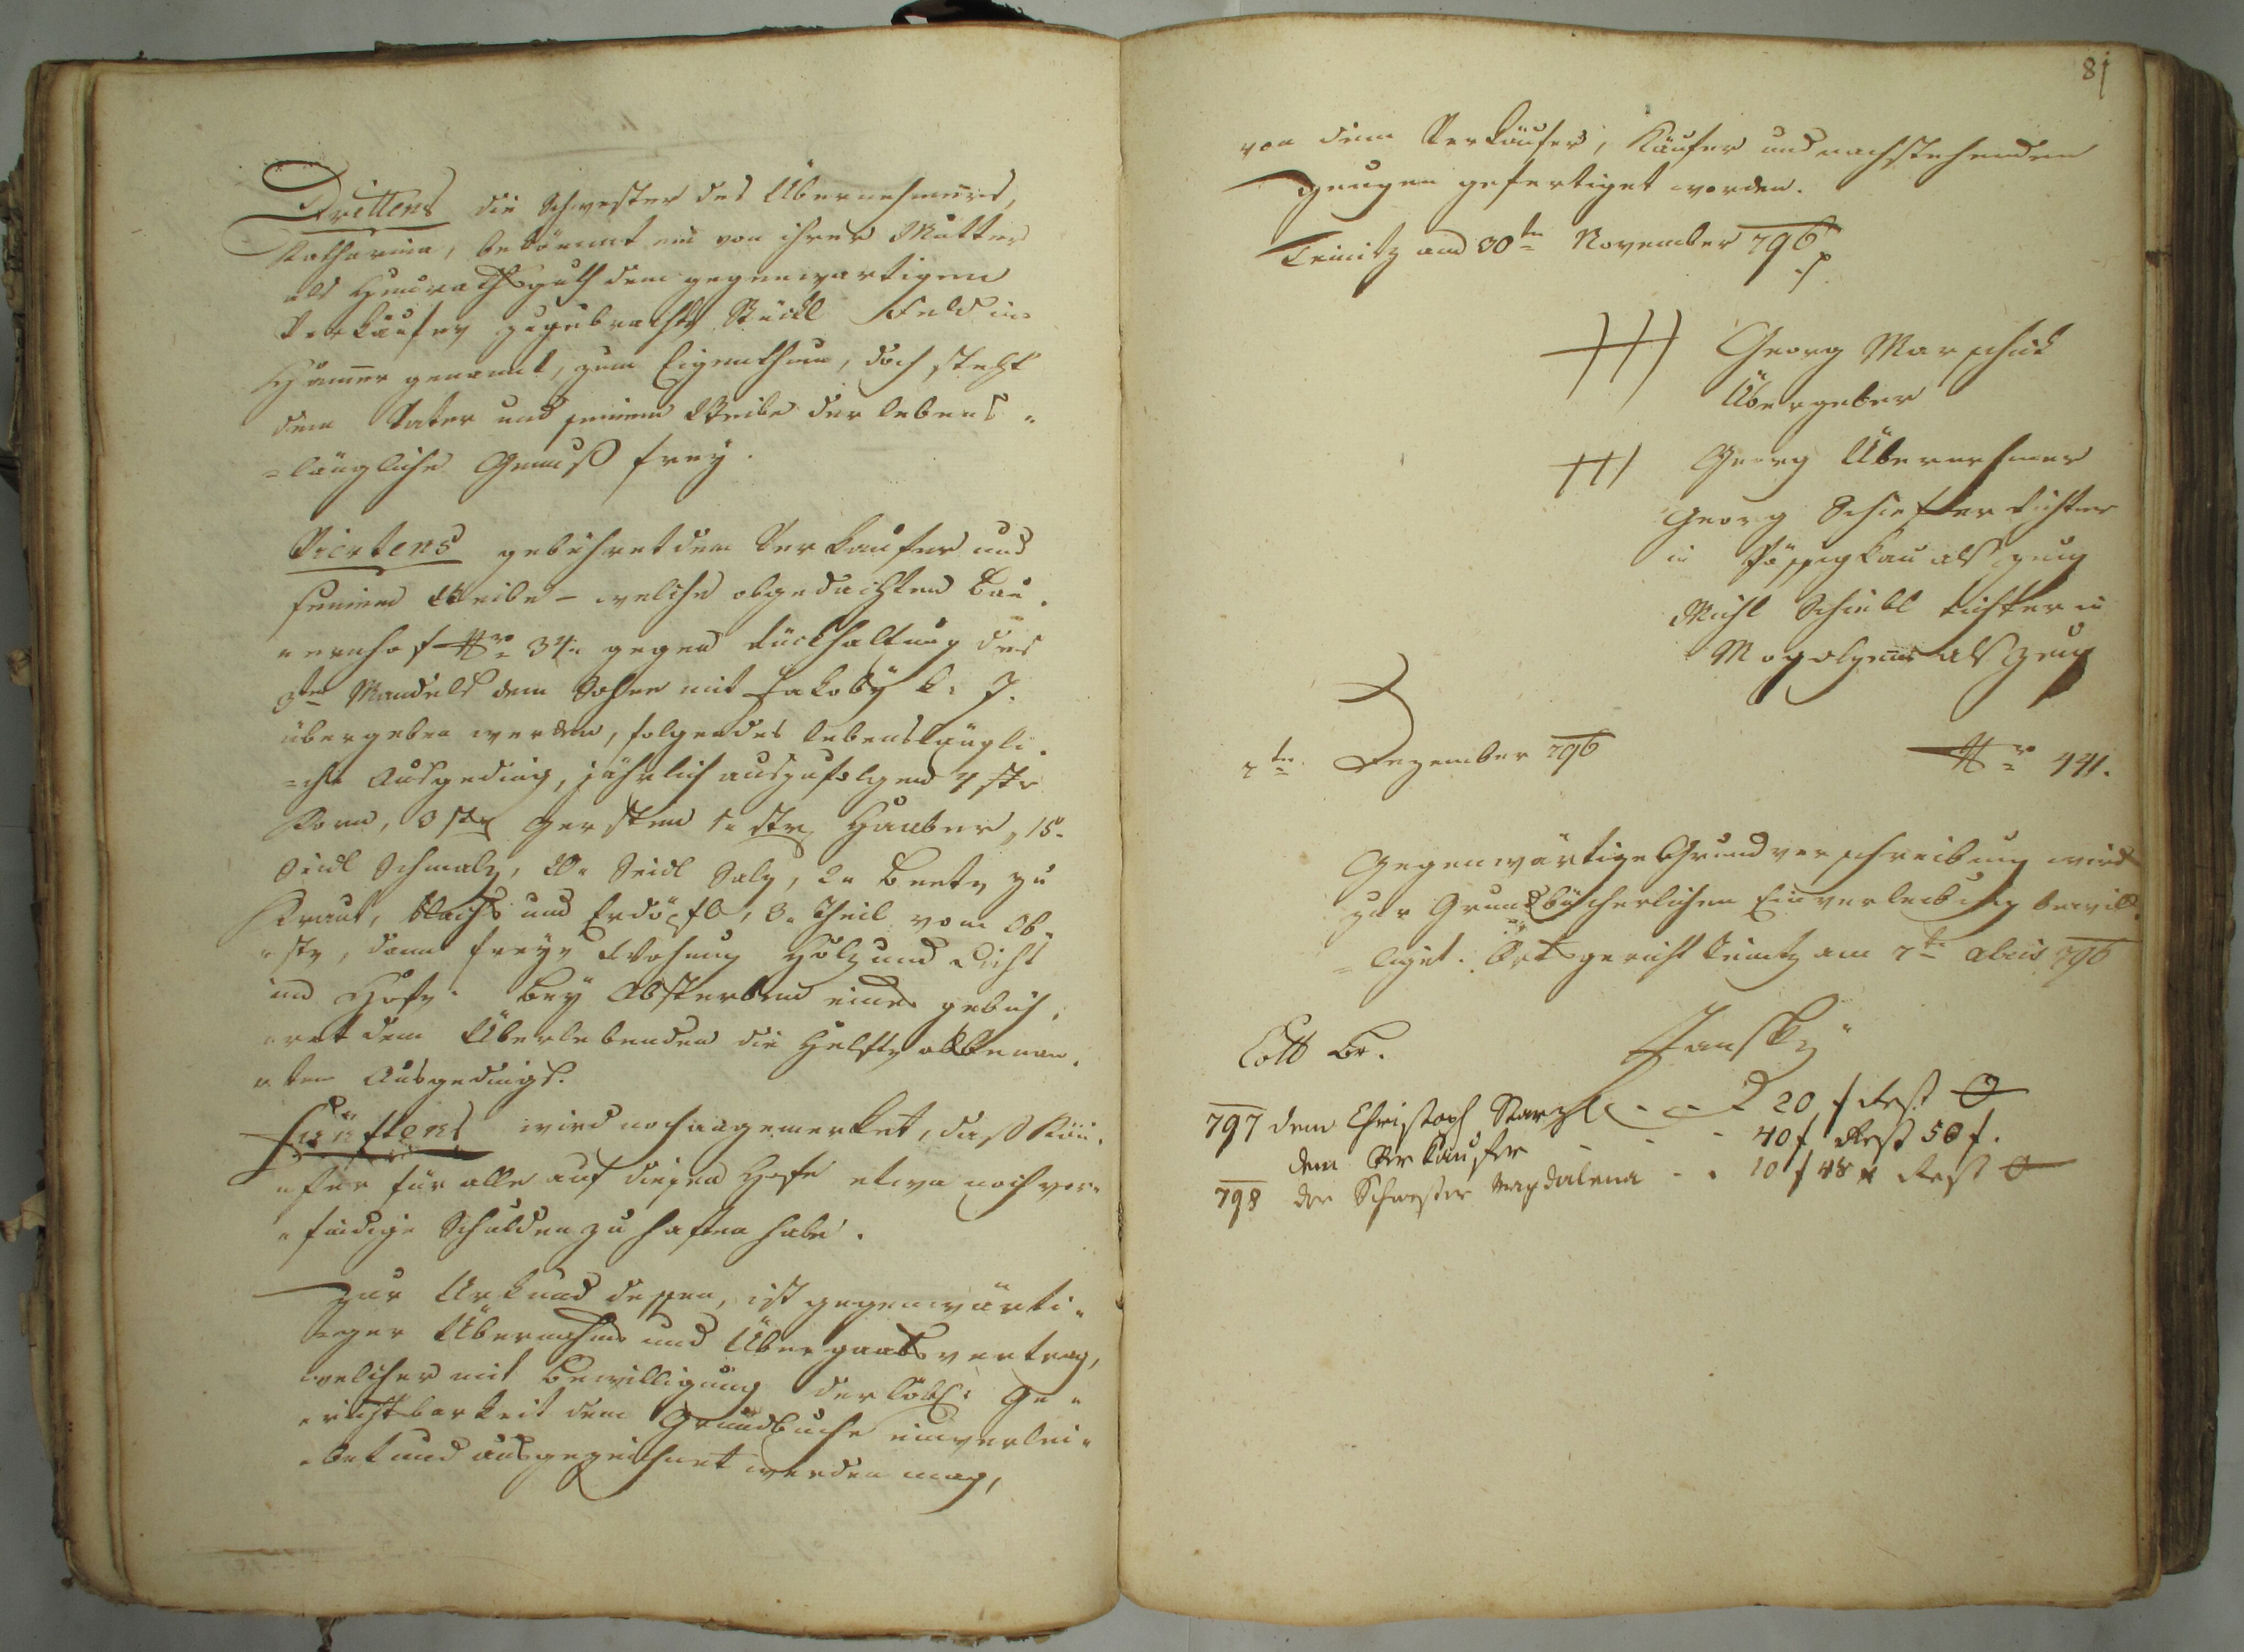 Drittens die Schwester des Übernehmers,
Katharina, bekömmt ein von ihrer Mutter
als Heurathsguth dem gegenwartigen
Verkaufer zugebrachtes Stückl Feld im
Hamer genannt, zum Eigenthum, doch steht
dem Vater und seinem Weibe der lebens-
=längliche Genuß frey.
Viertens gebühret dem Verkaufer und
seinem Weibe – welche obgedachten Bau-
ernhof Nro 34 gegen Rückhaltung des
3ten Mandels dem Sohne mit Jakoby k: J.
übergeben werden, folgendes lebenslängli-
=che Ausgeding, jährlich auszufolgend 4 str
Korn, 3 str Gersten 1 str Haaber, 15
Seidl Schmalz, Seidl Salz, 2 Beete zu
Kraut, Flachs und Erdäpfl, 3. Theil vom Ob-
ste, dann freye Wohnung Holz und Licht
im Hofe. Bey Absterben eines gebüh-
ret dem Überlebenden die Helfte obbenan-
ten Ausgedings.
Fünftens wird noch angemerket, daß Käu-
fer für alle auf diesem Hofe etwa noch vor-
findige Schulden zu haften habe.
Zur Urkund dessen, ist gegenwärti-
ger Übernahms und Übergaabsvertrag,
welcher mit Bewilligung der löbl: Ge-
richtbarkeit dem Grundbuche einverlei-
bet und ausgezeichnet werden mag,
81
von dem Verkäufer, Käufer und nachstehenden
Zeugen gefertiget worden.
Teinitz am 30ten November 796
+++ Georg Marschick
Übergeber
+++ Georg Übernehmer
Georg Schieferl Richter
in als Zeug
Michl Schiebl Richter in
Mogolzen als Zeug
2ten Dezember 796
Nro 441.
Gegenwärtige Grundverschreibung wird
zur Grundbücherlichen Einverleibung bewil-
=liget. Ortsgericht Teinitz am 2ten 796
Jansky
797 dem Christoph Starzl - - 20 f Rest 0
dem Verkäufer - - - 40 f Rest 50 f.
798 der Schwester Magdalena - - 10 f 48 x Rest 0